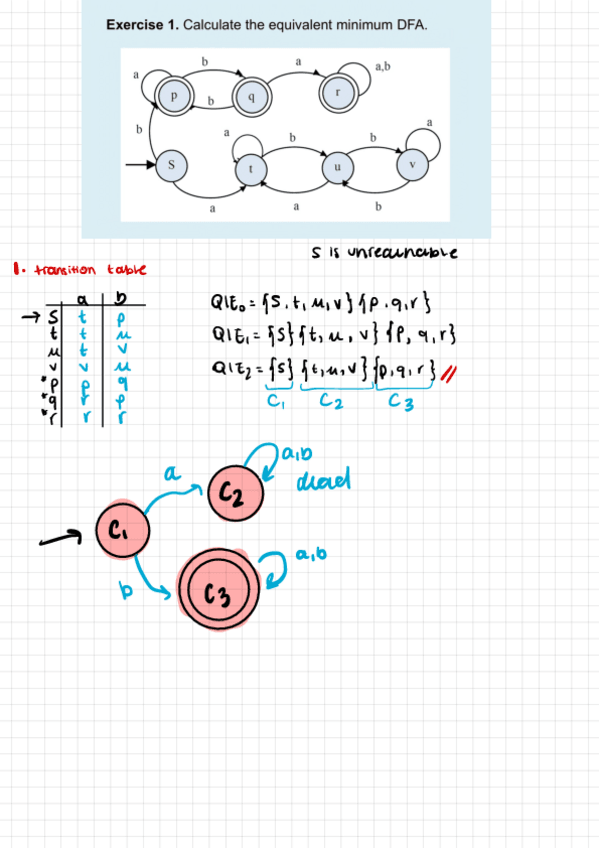 Exercise 1. Calculate the equivalent minimum DFA.
b a a,b
a
p q r
b
b
a b b a
S t u v
a a b
S is unreachable
1. transition table
a b
→ S t p
t t u
u t v
v v u
*p p q
*q r p
*r r r
Q|E₀ = {S, t, u, v} {p, q, r}
Q|E₁ = {S} {t, u, v} {p, q, r}
Q|E₂ = {S} {t, u, v} {p, q, r} //
C₁ C₂ C₃
a,b
a C₂ dead
C₁
a,b
b C₃